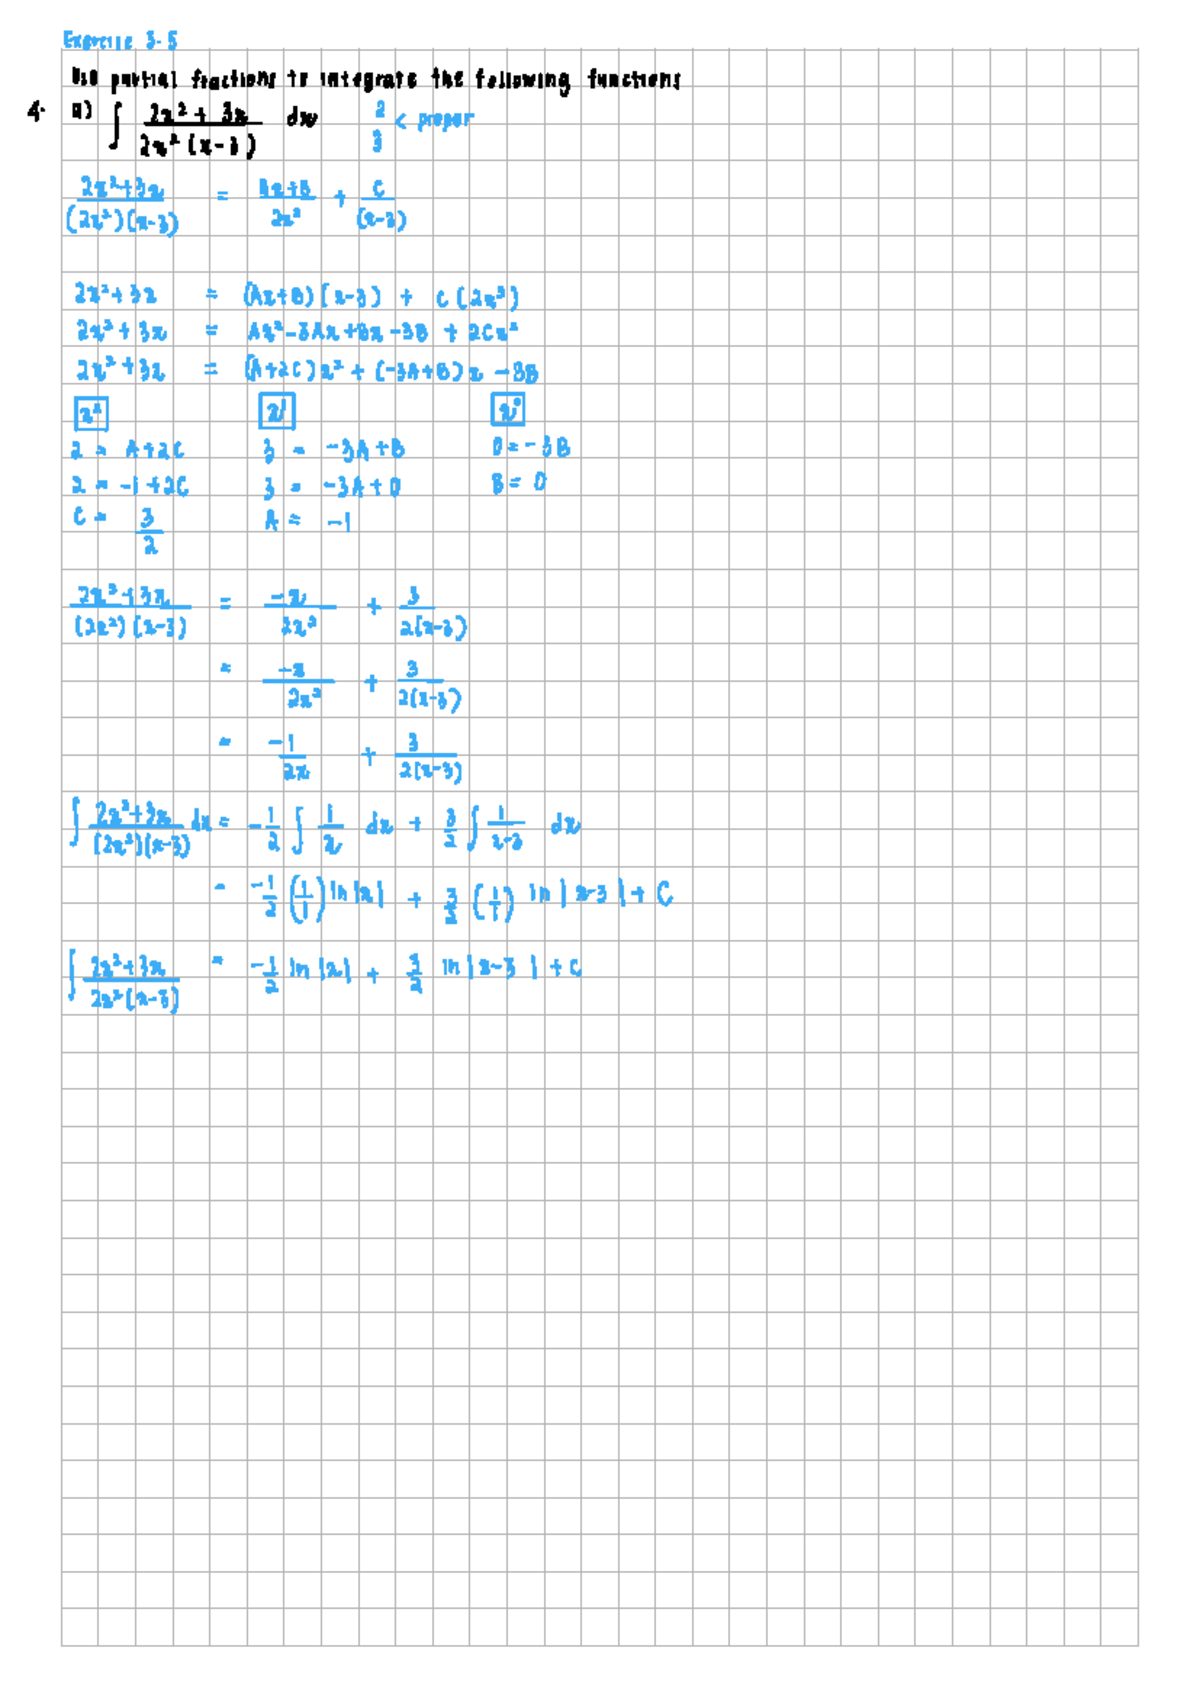 Exercise 3.5
Use partial fractions to integrate the following functions
4. a) ∫ (2x² + 3x) / (2x² (x-3)) dx  2/3 < proper
(2x²+3x) / ((2x²)(x-3)) = (Ax+B) / 2x² + C / (x-3)
2x²+3x = (Ax+B)(x-3) + C(2x²)
2x² + 3x = Ax² - 3Ax + Bx - 3B + 2Cx²
2x² + 3x = (A+2C)x² + (-3A+B)x - 3B
x²  x¹  x⁰
2 = A+2C  3 = -3A+B  0 = -3B
2 = -1+2C  3 = -3A+0  B = 0
C = 3/2  A = -1
(2x²+3x) / ((2x²)(x-3)) = -x / 2x² + 3 / 2(x-3)
= -x / 2x² + 3 / 2(x-3)
= -1 / 2x + 3 / 2(x-3)
∫ (2x²+3x) / ((2x²)(x-3)) dx = -1/2 ∫ 1/x dx + 3/2 ∫ 1/(x-3) dx
= -1/2 (1/1) ln|x| + 3/2 (1/1) ln|x-3| + C
∫ (2x²+3x) / (2x²(x-3)) = -1/2 ln|x| + 3/2 ln|x-3| + C